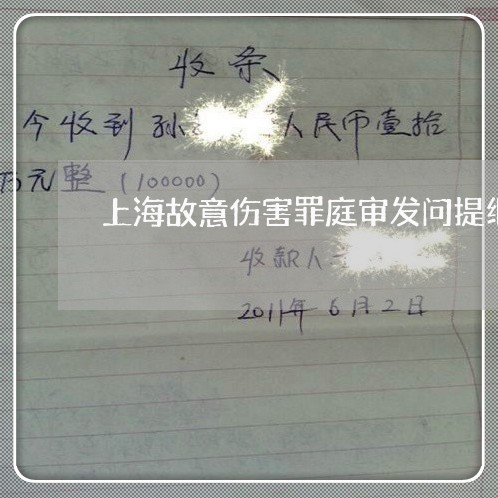 收条
今收到孙人民币壹拾
万元整（100000）
上海故意伤害罪庭审发问提
收款人
2011年6月2日